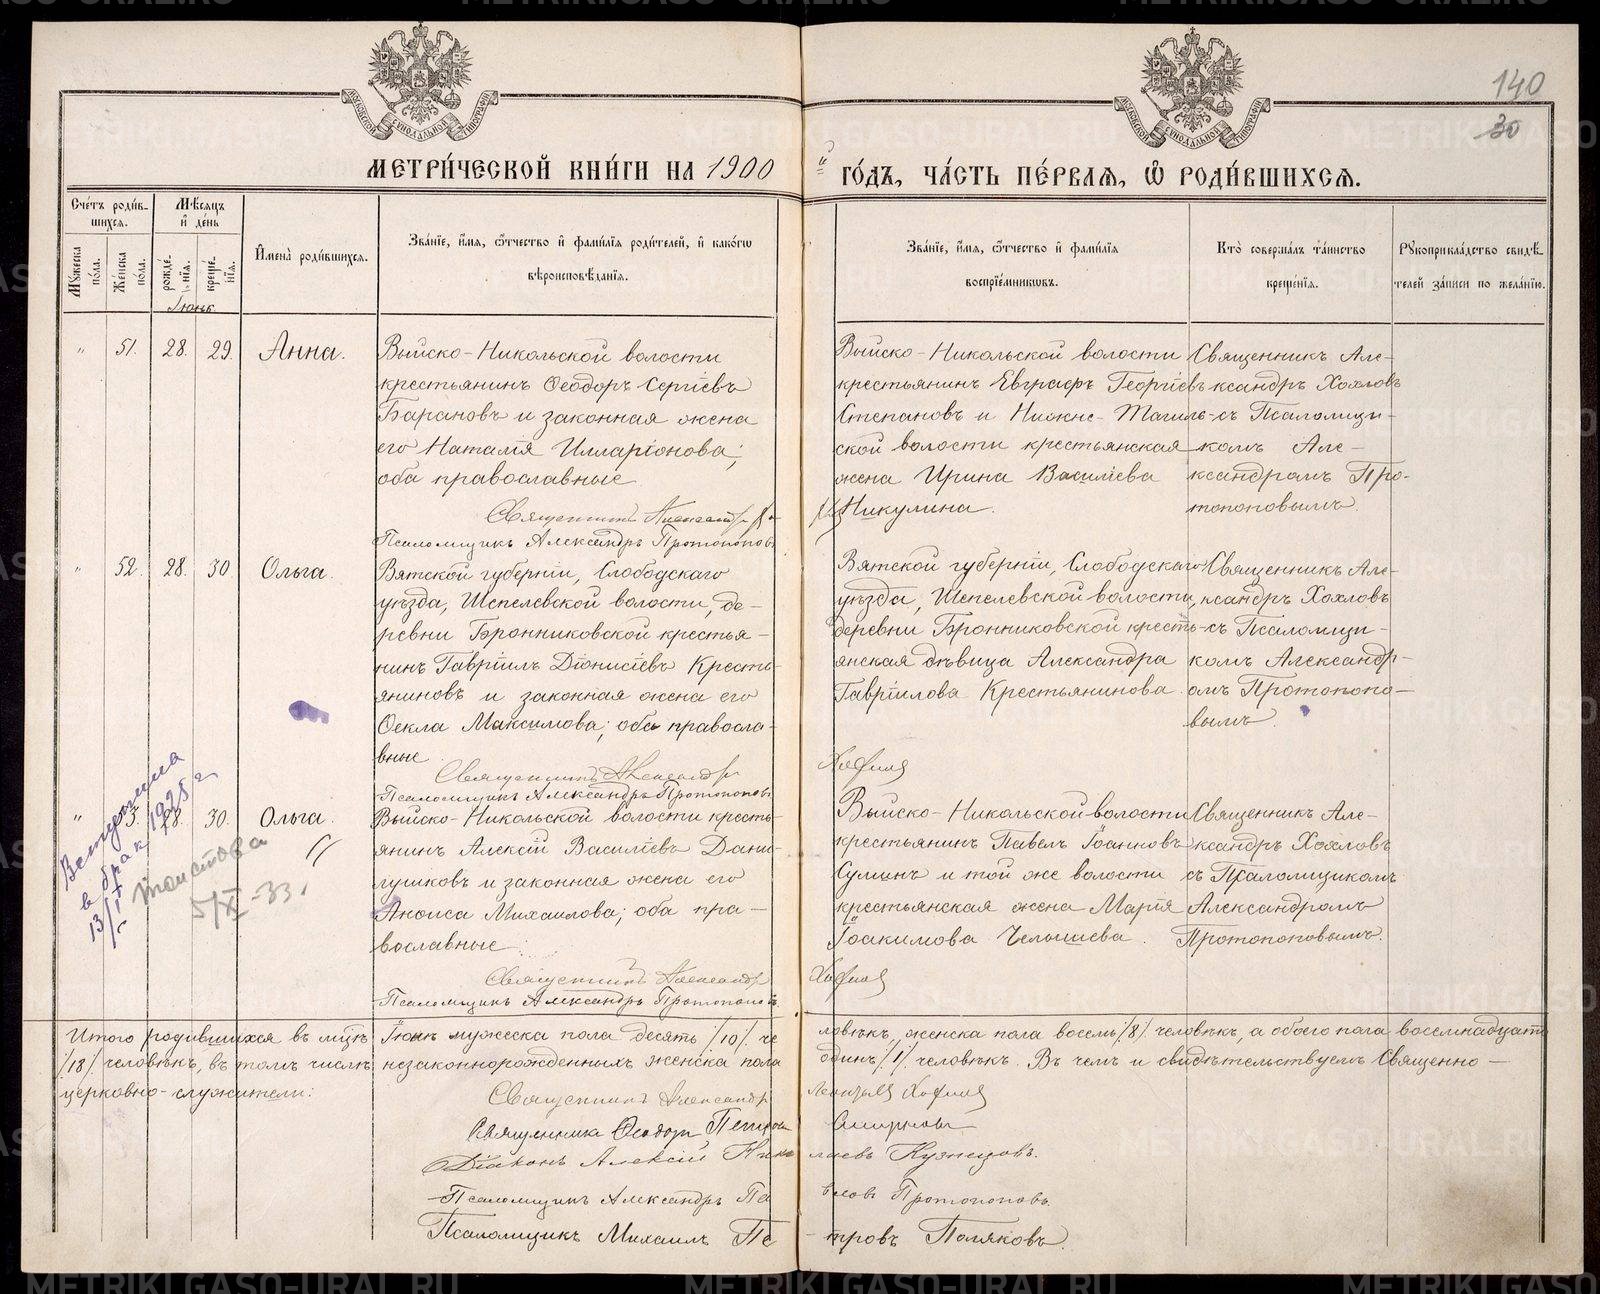 140
30
МЕТРИ́ЧЕСКОЙ КНИ́ГИ НА 1900 й ГО́ДЪ, ЧА́СТЬ ПЕ́РВАѦ, Ѽ РОДИ́ВШИХСѦ.
Сче́тъ роди́в-
шихся.
Мꙋжеска по́ла.
Же́нска пола.
Мѣ́сяцъ
и де́нь
рожде́нїя.
креще́нїя.
Имена̀ роди́вшихся.
Зва́нїе, и́мя, ѻ́тчество и фами́лїя роди́телей, и како́гѡ
вѣроисповѣ́данїя.
Зва́нїе, и́мя, ѻ́тчество и фами́лїя
воспрїе́мникѡвъ.
Кто̀ соверша́лъ та́инство
креще́нїя.
Рꙋкоприкла́дство свидѣ́-
телей за́писи по жела́нїю.
Іюнь
" 51. 28. 29. Анна.
Выйско-Никольской волости
крестьянинъ Ѳеодоръ Сергіевъ
Барановъ и законная жена
его Наталія Илларіонова;
оба православные
Священникъ Александръ
Псаломщикъ Александръ Протопоповъ
Выйско-Никольской волости
крестьянинъ Евграфъ Георгіевъ
Степановъ и Нижне-Тагиль-
ской волости крестьянская
жена Ирина Василіева
Никулина.
Священникъ Але-
ксандръ Хохловъ
съ Псаломщи-
комъ Але-
ксандромъ Про-
топоповымъ.
" 52. 28. 30. Ольга.
Вятской губерніи, Слободскаго
уѣзда, Шепелевской волости, де-
ревни Бронниковской крестья-
нинъ Гавріилъ Діонисіевъ Кресть-
яниновъ и законная жена его
Ѳекла Максимова; оба правосла-
вные
Священникъ Александръ
Псаломщикъ Александръ Протопоповъ
Вятской губерніи, Слободскаго
уѣзда, Шепелевской волости,
деревни Бронниковской кресть-
янская дѣвица Александра
Гавріилова Крестьянинова
Священникъ Але-
ксандръ Хохловъ
съ Псаломщи-
комъ Александр-
омъ Протопопо-
вымъ.
Хохловъ
" 53. 28. 30. Ольга.
Выйско-Никольской волости кресть-
янинъ Алексій Василіевъ Дани-
лушковъ и законная жена его
Анѳиса Михаилова; оба пра-
вославные.
Священникъ Александръ
Псаломщикъ Александръ Протопоповъ.
Выйско-Никольской волости
крестьянинъ Павелъ Іоанновъ
Суминъ и той же волости
крестьянская жена Марія
Іоакимова Челышева.
Священникъ Але-
ксандръ Хохловъ
съ Псаломщикомъ
Александромъ
Протопоповымъ.
Хохловъ
Вступила
в брак 1925 г
13/IX
Толстова
5/X-33.
Итого родившихся въ мцѣ Іюнѣ мужеска пола десять /10/ че ловѣкъ, женска пола восемь /8/ человѣкъ, а обоего пола восемнадцать
/18/ человѣкъ, въ томъ числѣ незаконнорожденныхъ женска пола одинъ /1/ человѣкъ. Въ чемъ и свидѣтельствуемъ Священно-
церковно-служители:
Священникъ Александръ Хохловъ
Священникъ Ѳеодоръ Петров Смирновъ
Діаконъ Алексій Нико лаевъ Кузнецовъ.
Псаломщикъ Александръ Па вловъ Протопоповъ.
Псаломщикъ Михаилъ Пе тровъ Поляковъ.
METRIKI.GASO-URAL.RU